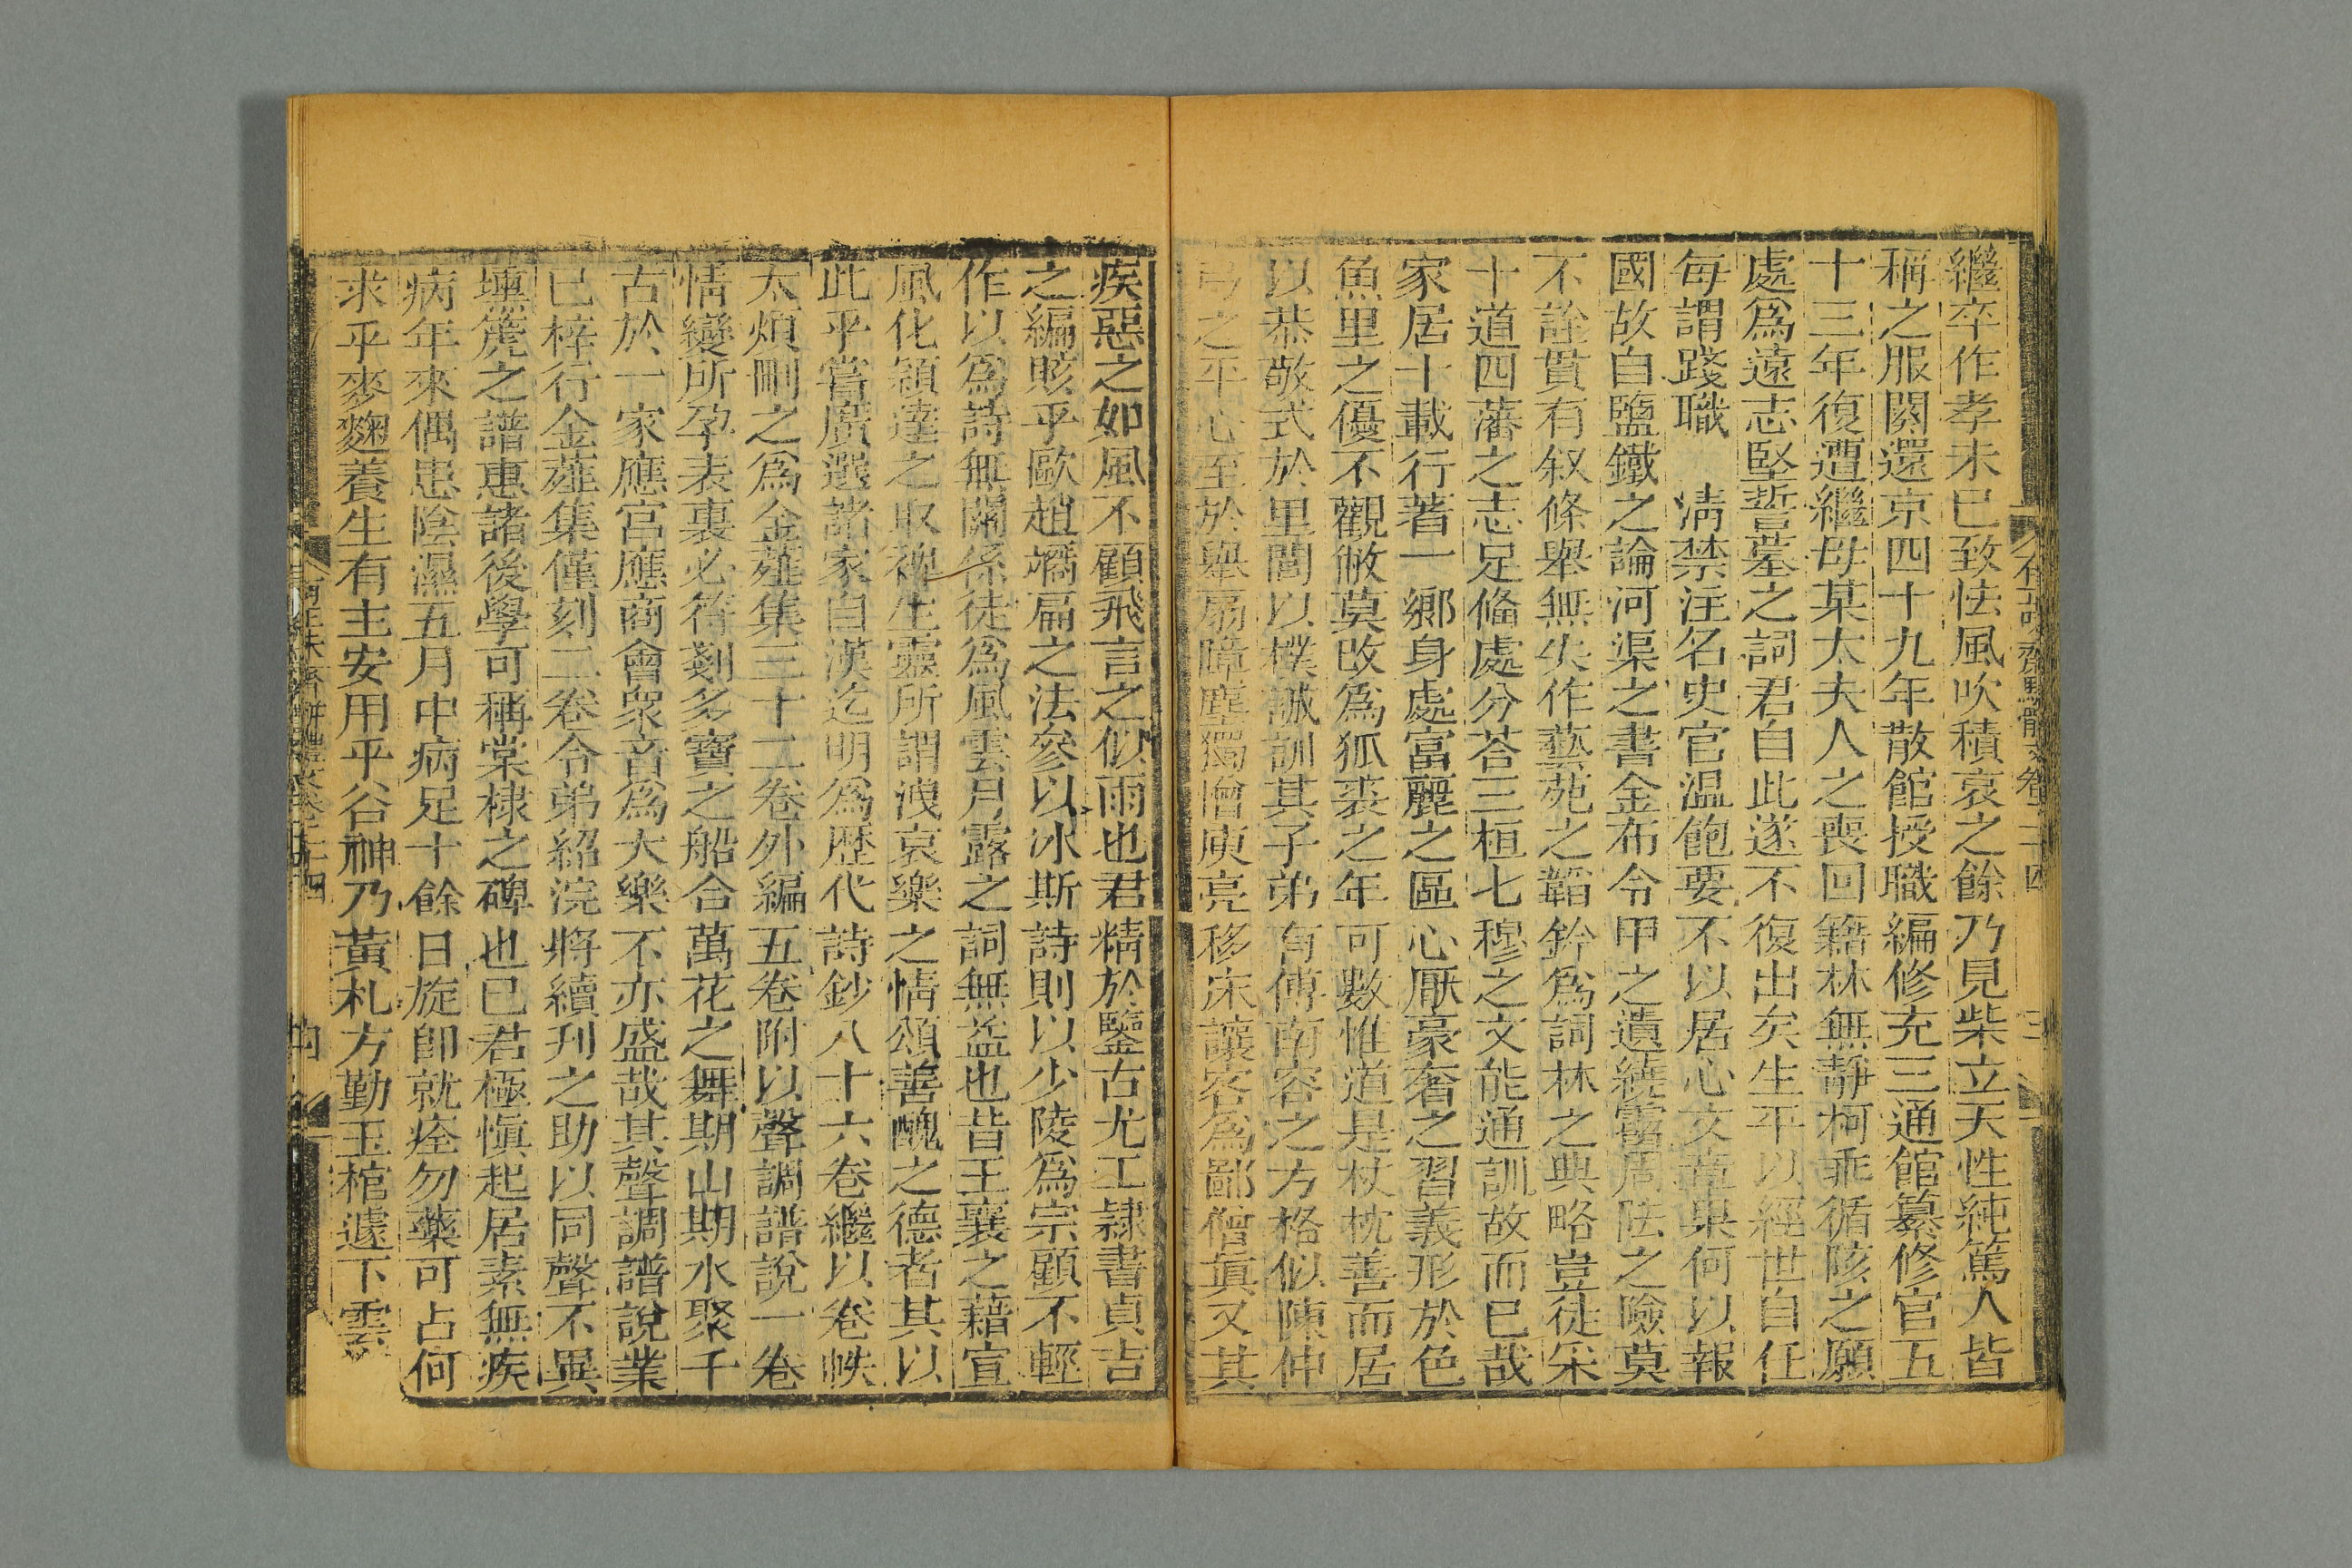 繼卒作孝未已致怯風吹積哀之餘乃見柴立天性純篤人皆
稱之服闋還京四十九年散館授職編修充三通館纂修官五
十三年復遭繼母某太夫人之喪回籍林無靜柯乖循陔之願
處爲遠志堅誓墓之詞君自此遂不復出矣生平以經世自任
每謂踐職 淸禁注名史官温飽要不以居心文章果何以報
國故自鹽鐵之論河渠之書金布令甲之遺繞霤居阹之險莫
不詮貫有叙條舉無失作藝苑之韜鈐爲詞林之典略豈徒采
十道四藩之志足俻處分荅三桓七穆之文能通訓故而已哉
家居十載行著一鄉身處富麗之區心厭豪奢之習義形於色
魚里之優不觀敝莫改爲狐裘之年可數惟道是杖枕善而居
以恭敬式於里閭以樸誠訓其子弟有傅南容之方格似陳仲
弓之平心至於舉扇障塵獨憎庾亮移床讓客爲鄙僧眞又其
疾惡之如風不顧飛言之似雨也君精於鑒古尤工隷書貞吉
之編賅乎歐趙斶扁之法參以冰斯詩則以少陵爲宗顧不輕
作以爲詩無關係徒爲風雲月露之詞無益也昔王襄之藉宣
風化穎達之取裨生靈所謂洩哀樂之情頌善醜之德者其以
此乎嘗廣選諸家自漢迄明爲歷代詩鈔八十六卷繼以卷帙
太煩刪之爲金薤集三十二卷外編五卷附以聲調譜說一卷
情變所孕表裏必符剡多寶之船合萬花之舞期山期水聚千
古於一家應宮應商會衆音爲大樂不亦盛哉其聲調譜說業
已梓行金薤集僅刻二卷令弟紹浣將續刋之助以同聲不異
壎篪之譜惠諸後學可稱棠棣之碑也已君極愼起居素無疾
病年來偶患陰濕五月中病足十餘日旋即就痊勿藥可占何
求乎麥麴養生有主安用乎谷神乃黃札方勤玉棺遽下雲